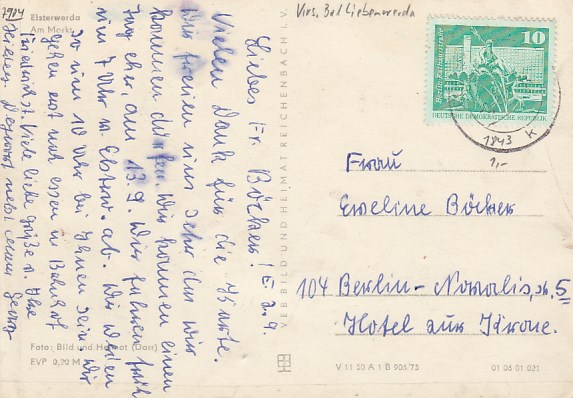 7904
Elsterwerda
Am Markt
Liebes Fr. Böcker! E. 2.9.
Vielen Dank für die Karte.
Wir freuen uns sehr das wir
kommen dürfen. Wir kommen einen
Tag eher, am 13.9. Wir fahren früh
um 7 Uhr in Elsterw. ab. Wir werden
so um 10 Uhr bei Ihnen sein. Wir
gehen erst mal essen in Bahnhof
Friedrichst. Viele liebe Grüße v. Ilse
Foto: Bild und Heimat (Darr)
EVP 0,20 M
VEB BILD UND HEIMAT REICHENBACH i. V.
Virs. Bad Liebenwerda
10
DEUTSCHE DEMOKRATISCHE REPUBLIK
1843
1,-
Frau
Eweline Böcker
104 Berlin-Novalis,str. 5
Hotel zur Krone.
V 11 50 A 1 B 905/75
01 05 01 021